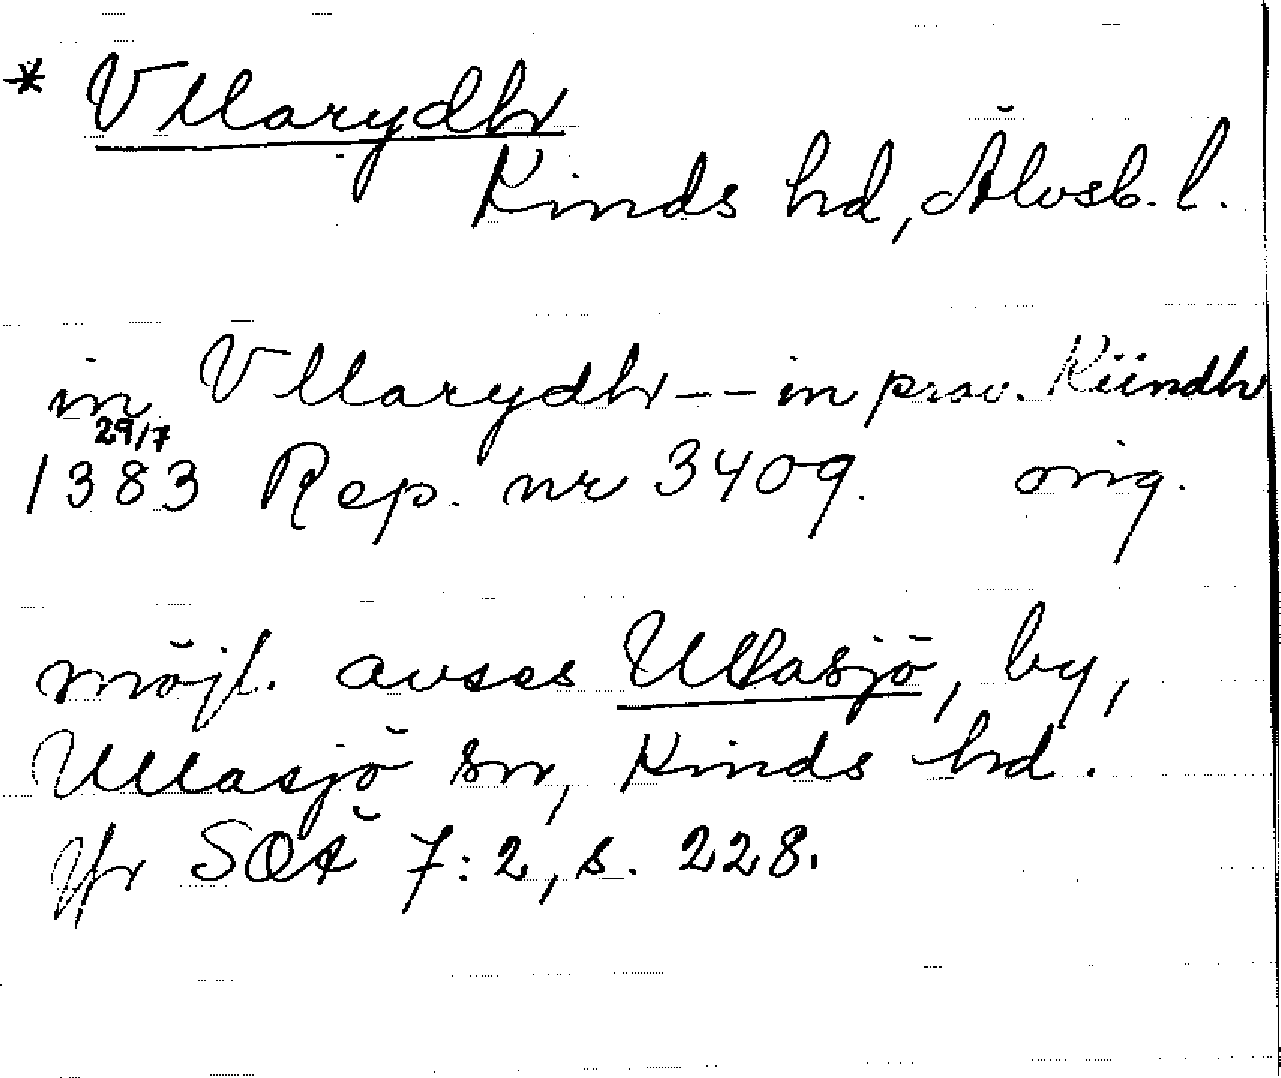 * Vllarydhr
Kinds hd, Älvsb. l.
in Vllarydhr -- in prov. Kiindh
29/7
1383 Rep. nr 3409. orig.
möjl. avses Ullasjö, by,
Ullasjö sn, Kinds hd.
Jfr SOÄ 7:2, s. 228.